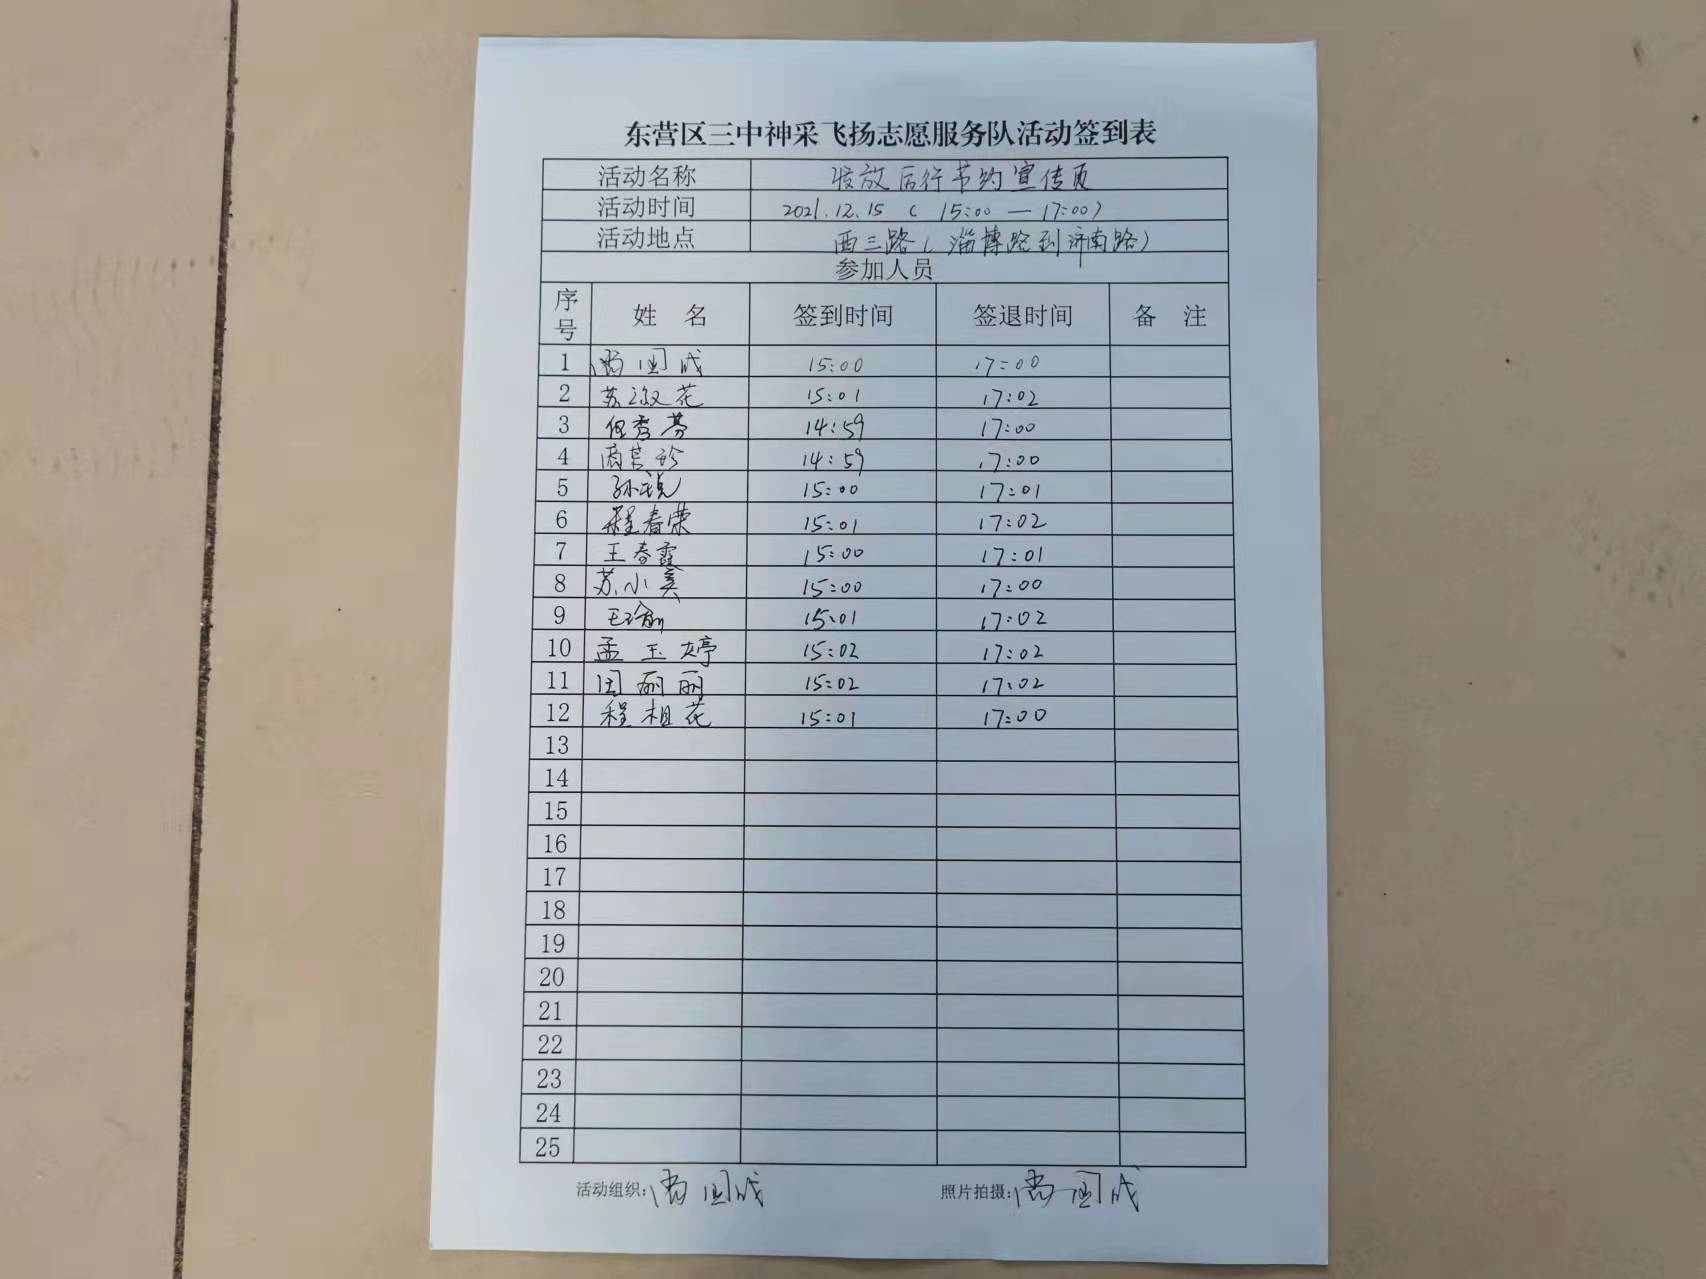 东营区三中神采飞扬志愿服务队活动签到表
活动名称 发放厉行节约宣传页
活动时间 2021.12.15 ( 15:00 — 17:00)
活动地点 西三路(淄博路到济南路)
参加人员
序号 姓 名 签到时间 签退时间 备 注
1 国成 15:00 17:00
2 苏淑花 15:01 17:02
3 任秀芬 14:59 17:00
4 14:59 17:00
5 15:00 17:01
6 程春荣 15:01 17:02
7 王春霞 15:00 17:01
8 苏小美 15:00 17:00
9 王瑜 15:01 17:02
10 孟玉婷 15:02 17:02
11 田丽丽 15:02 17:02
12 程相花 15:01 17:00
13
14
15
16
17
18
19
20
21
22
23
24
25
活动组织: 国成 照片拍摄: 国成